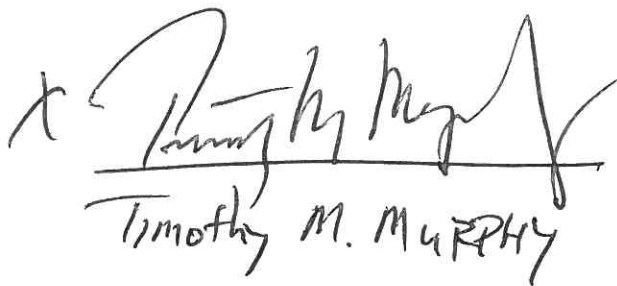 X Timothy Murphy
Timothy M. MURPHY